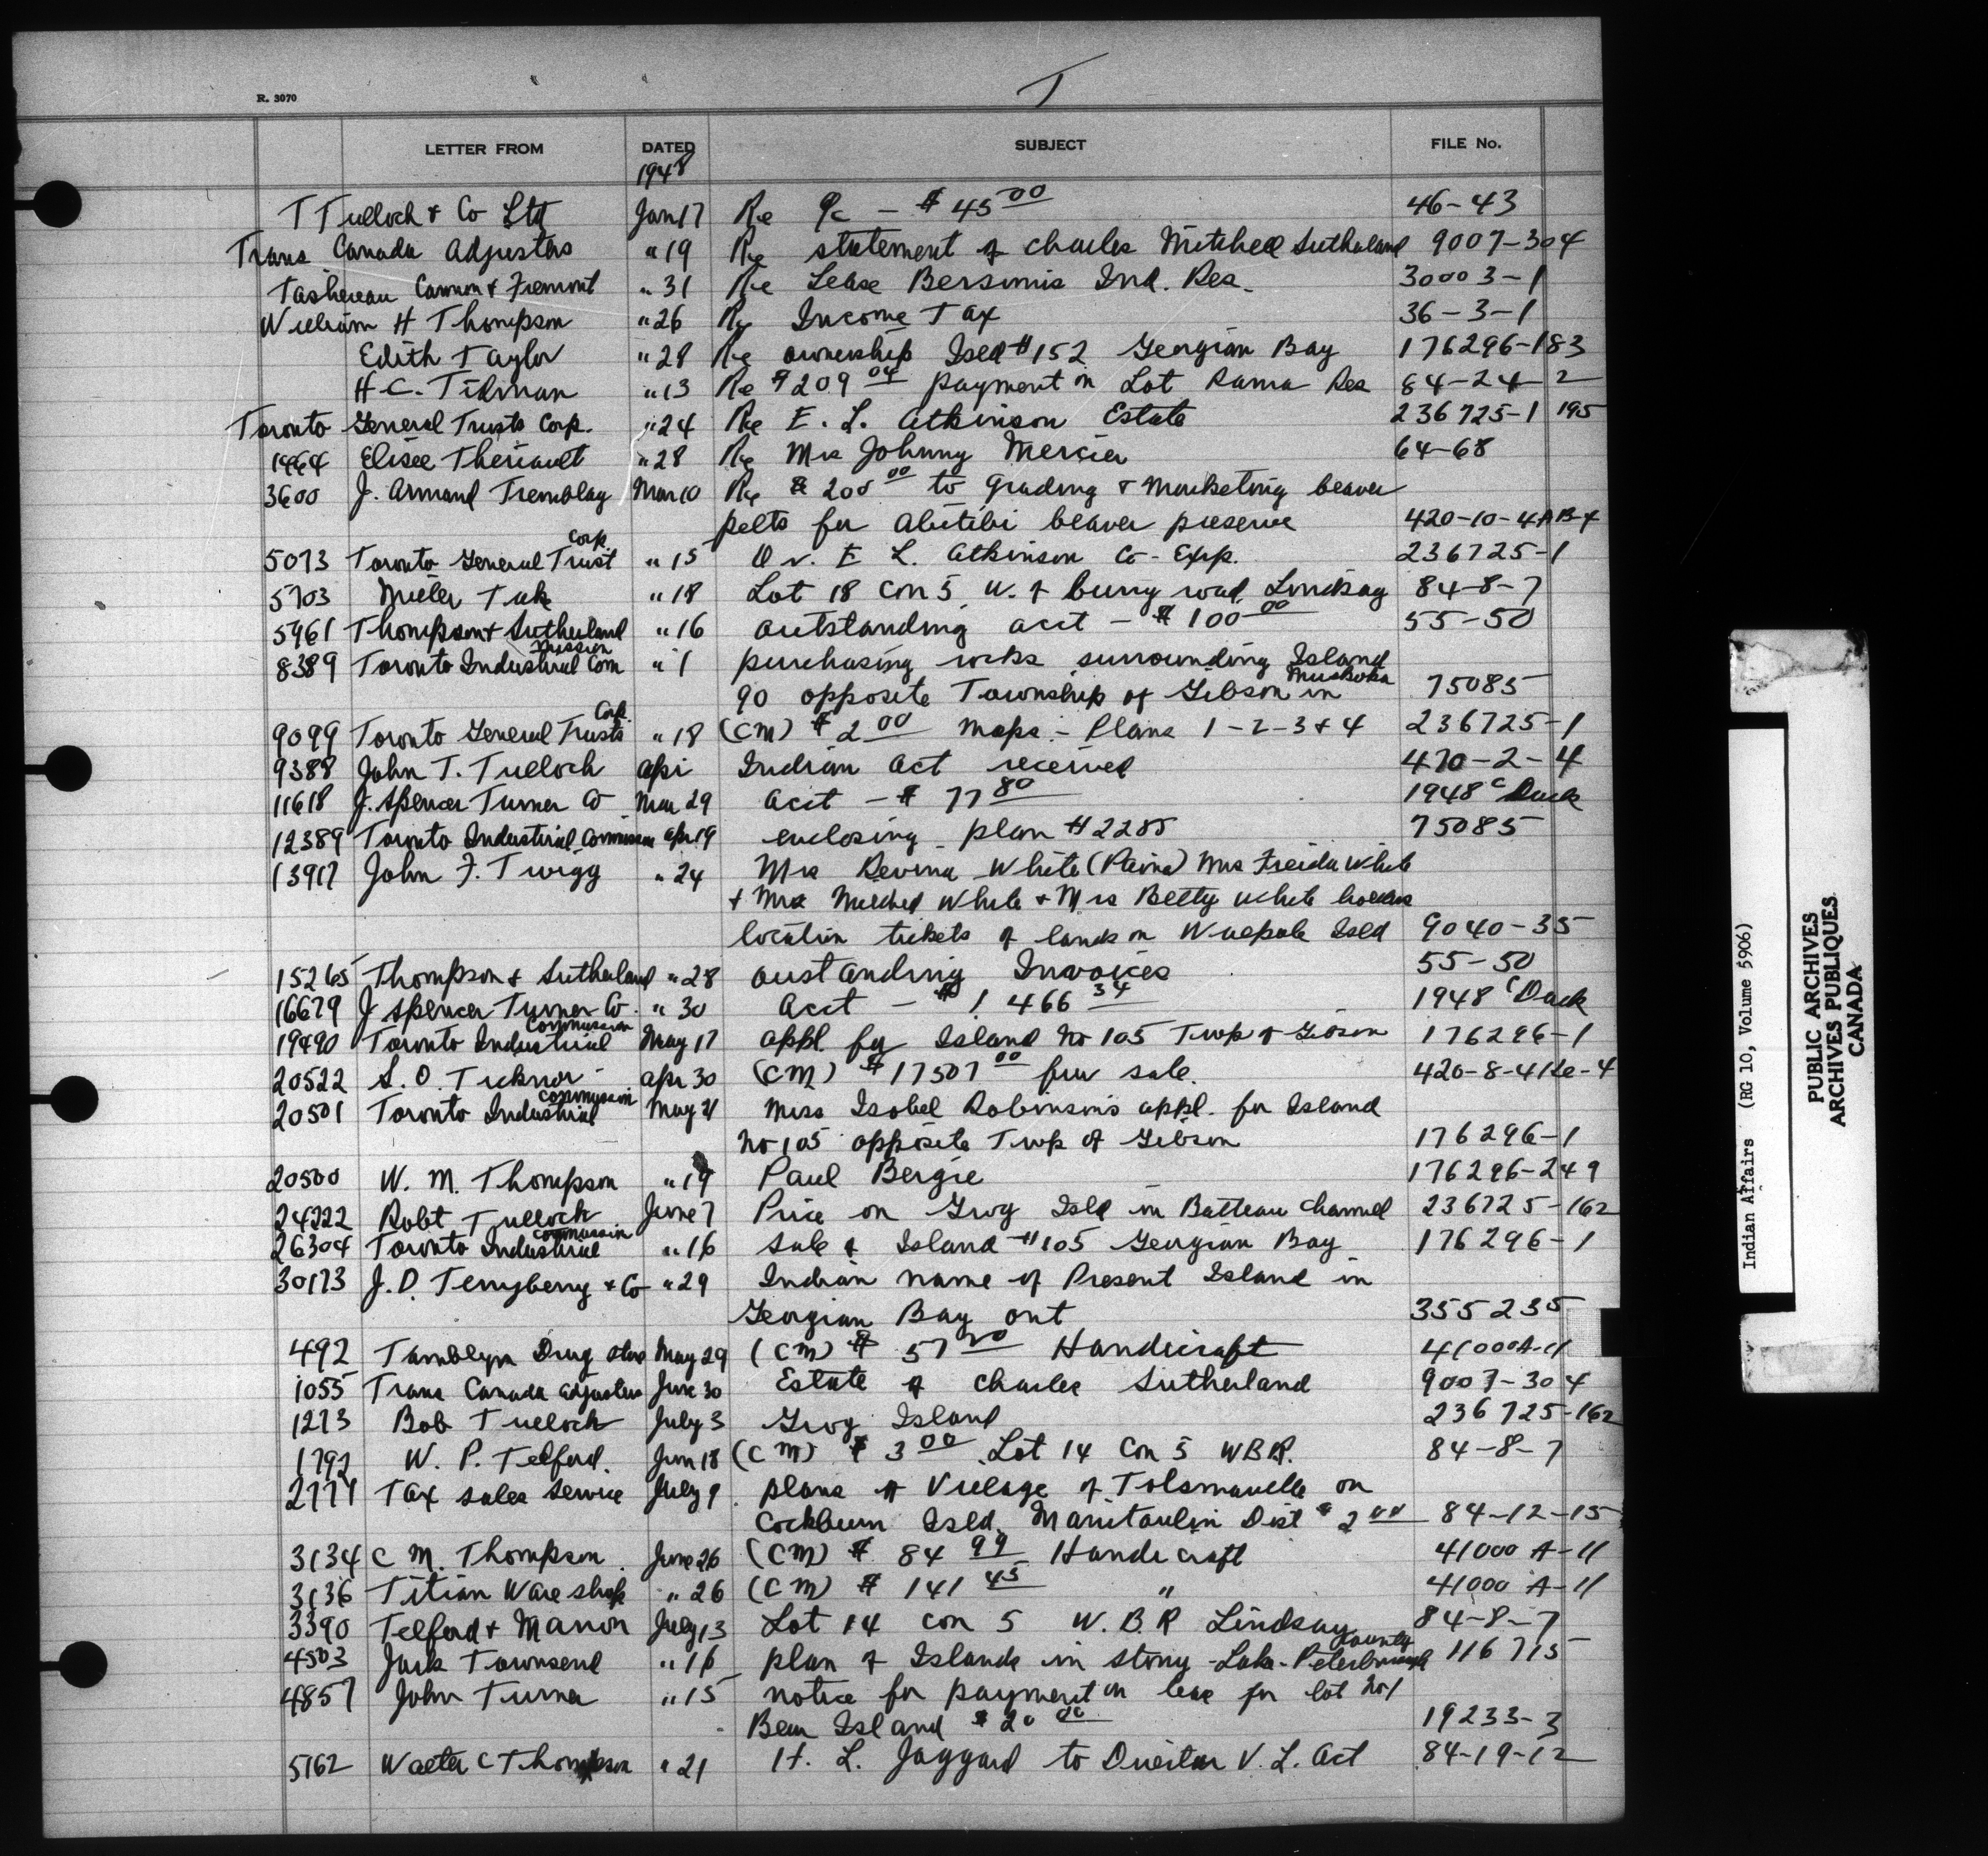 T
R. 3070
LETTER FROM DATED SUBJECT FILE No.
1948
T Tulloch & Co Ltd Jan 17 Re a/c - $45 00 46-43
Trans Canada Adjusters " 19 Re statement of Charles Mitchell Sutherland 9007-304
Tashereau Cannon & Fremont " 31 Re Lease Bersimis Ind. Res. 30003-1
William H Thompson " 26 Re Income Tax 36-3-1
Edith Taylor " 28 Re ownership Isld #152 Georgian Bay 176296-183
H.C. Tilman " 13 Re $209 04 payment on Lot Rama Res 84-24-2
Toronto General Trusts Corp. " 24 Re E. L. Atkinson Estate 236725-1 195
1464 Elisee Theriault " 28 Re Mrs Johnny Mercier 64-68
3600 J. Armand Tremblay Mar 10 Re $200 00 to grading & marketing beaver
pelts for Abitibi beaver preserve 420-10-4AB-4
5073 Toronto General Trust Corp " 15 O v. E L. Atkinson Co-Exp. 236725-1
5703 " 18 Lot 18 Con 5 W. of bury road Lindsay 84-8-7
5961 Thompson & Sutherland " 16 outstanding acct - $100 00 55-50
8389 Toronto Industrial Commission " 1 purchasing rocks surrounding Island
90 opposite Township of Gibson in Muskoka 75085
9099 Toronto General Trusts Corp. " 18 (CM) $2 00 maps - Plans 1-2-3 & 4 236725-1
9388 John T. Tulloch Apr 1 Indian Act received 470-2-4
11618 J. Spencer Turner Co Mar 29 Acct - $77 80 1948 C Duck
12389 Toronto Industrial Commission Apr 19 enclosing plan #2285 75085
13917 John F. Twigg " 24 Mrs Revina White (Paina) Mrs Freida White
& Mrs Mildred White & Mrs Betty White holders
location tickets of lands on Walpole Isld 9040-35
15265 Thompson & Sutherland " 28 oustanding Invoices 55-50
16679 J Spencer Turner Co. " 30 Acct - $1466 34 1948 C Duck
19490 Toronto Industrial Commission May 17 appl. for Island No 105 Twp of Gibson 176296-1
20522 S. O. Ticknor Apr 30 (CM) $17507 00 fur sale. 420-8-4
20501 Toronto Industrial Commission May 21 Miss Isobel Robinson's appl. for Island
No 105 opposite Twp of Gibson 176296-1
20500 W. M. Thompson " 19 Paul Bergie 176296-249
24222 Robt Tulloch June 7 Price on Grog Isld in Batteau Channel 236725-162
26304 Toronto Industrial Commission " 16 Sale of Island #105 Georgian Bay 176296-1
30173 J. D. Terryberry & Co " 29 Indian name of Present Island in
Georgian Bay Ont 355235
492 Tamblyn Drug Store May 29 (CM) $57 00 Handicraft 41000A-11
1055 Trans Canada Adjusters June 30 Estate of Charles Sutherland 9007-304
1273 Bob Tulloch July 3 Grog Island 236725-162
1792 W. P. Telford. Jun 18 (CM) $3 00 Lot 14 Con 5 WBR. 84-8-7
2777 Tax Sales Service July 9 plans of Village of Tolsmaville on
Cockburn Isld. Manitoulin Dist $2 00 84-12-15
3134 C M. Thompson June 26 (CM) $84 99 Handicraft 41000 A-11
3136 Titian Ware shop " 26 (CM) $141 45 " 41000 A-11
3390 Telford & Manor July 13 Lot 14 con 5 W. B. R Lindsay 84-8-7
4503 Jack Townsend " 16 plan of Islands in Stony Lake - Peterborough County 116715
4857 John Turner " 15 notice for payment on lease for lot 201
Bear Island $20 00 19233-3
5162 Walter C Thompson " 21 H. L. Jaggard to Director V. L. Act 84-19-12
Indian Affairs (RG 10, Volume 5906)
PUBLIC ARCHIVES
ARCHIVES PUBLIQUES
CANADA